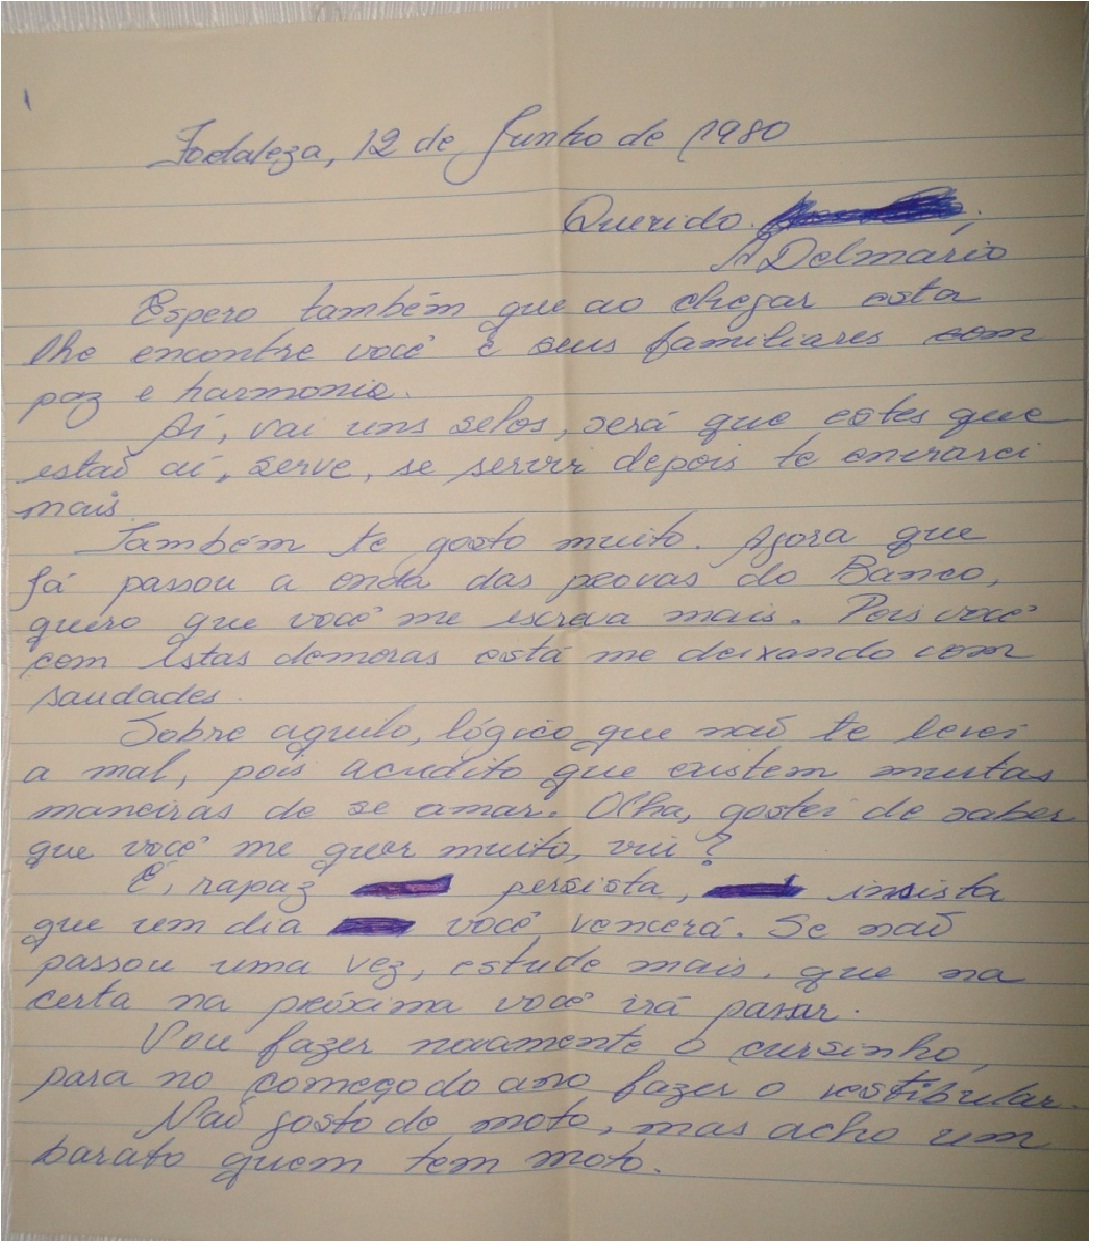 1
Fortaleza, 12 de Junho de 1980
Querido
A Delmário
Espero também que ao chegar esta
lhe encontre você e seus familiares com
paz e harmonia.
Aí, vai uns selos, será que estes que
estão aí, serve, se servir depois te enviarei
mais.
Também te gosto muito. Agora que
já passou a onda das provas do Banco,
quero que você me escreva mais. Pois você
com estas demoras está me deixando com
saudades.
Sobre aquilo, lógico que não te levei
a mal, pois acredito que existem muitas
maneiras de se amar. Olha, gostei de saber
que você me quer muito, viu?
É, rapaz persista, insista
que um dia você vencerá. Se não
passou uma vez, estude mais, que na
certa na próxima você irá passar.
Vou fazer novamente o cursinho,
para no começo do ano fazer o vestibular.
Não gosto de moto, mas acho um
barato quem tem moto.